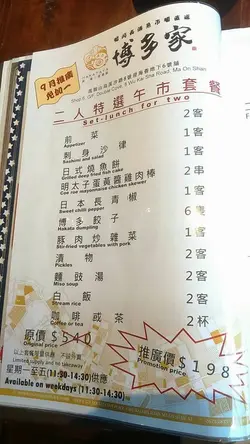 博多家
9月推廣
二人特選午市套餐
Set-lunch for two
前菜 2客
Appetizer
刺身沙律 1客
Sashimi and salad
日式燒魚餅 2串
Grilled deep fried fish cake
明太子蛋黃醬雞肉棒
Cod roe mayonnaise chicken skewer
日本長青椒
Sweet chilli pepper
博多餃子
Hakata dumpling
豚肉炒雜菜
Stir-fried vegetables with pork
漬物 2客
Pickles
麵豉湯 2客
Miso soup
白飯 2客
Steam rice
咖啡或茶 2杯
Coffee or tea
原價$540
Original price
推廣價$198
Promotion price
Limited supply and no takeaway
星期一至五(11:30-14:30)供應
Available on weekdays (11:30-14:30)